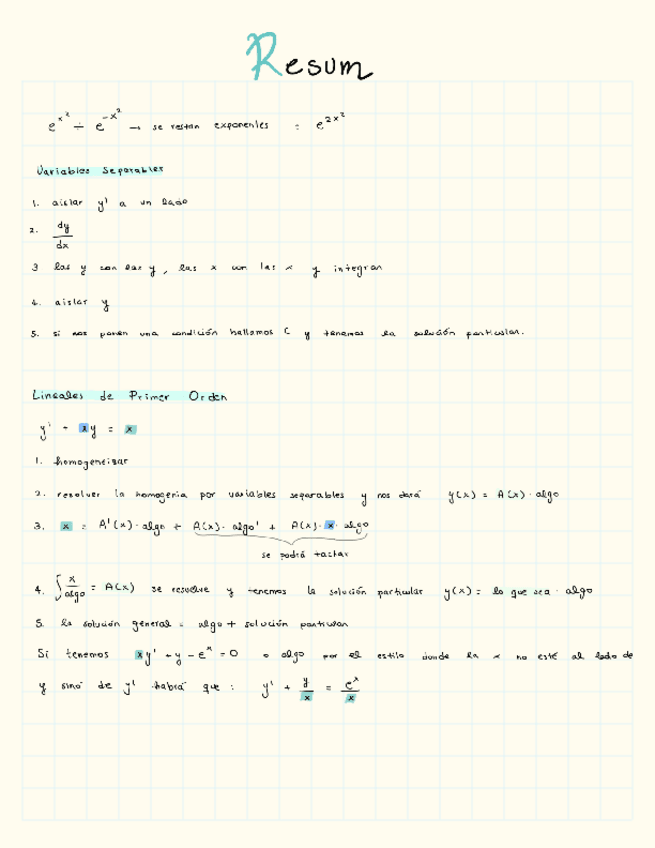 Resum
e^{x^2} ÷ e^{-x^2} → se restan exponentes = e^{2x^2}
Variables Separables
1. aislar y' a un lado
2. dy/dx
3 las y con las y, las x con las x y integran
4. aislar y
5. si nos ponen una condición hallamos C y tenemos la solución particular.
Lineales de Primer Orden
y' + xy = x
1. homogeneizar
2. resolver la homogenia por variables separables y nos dará y(x) = A(x) · algo
3. x = A'(x) · algo + A(x) · algo' + A(x) · x · algo
se podrá tachar
4. ∫ x/algo = A(x) se resuelve y tenemos la solución particular y(x) = lo que sea · algo
5. la solución general = algo + solución particular
Si tenemos xy' + y - e^x = 0 o algo por el estilo donde la x no esté al lado de
y sino de y' habrá que : y' + y/x = e^x/x